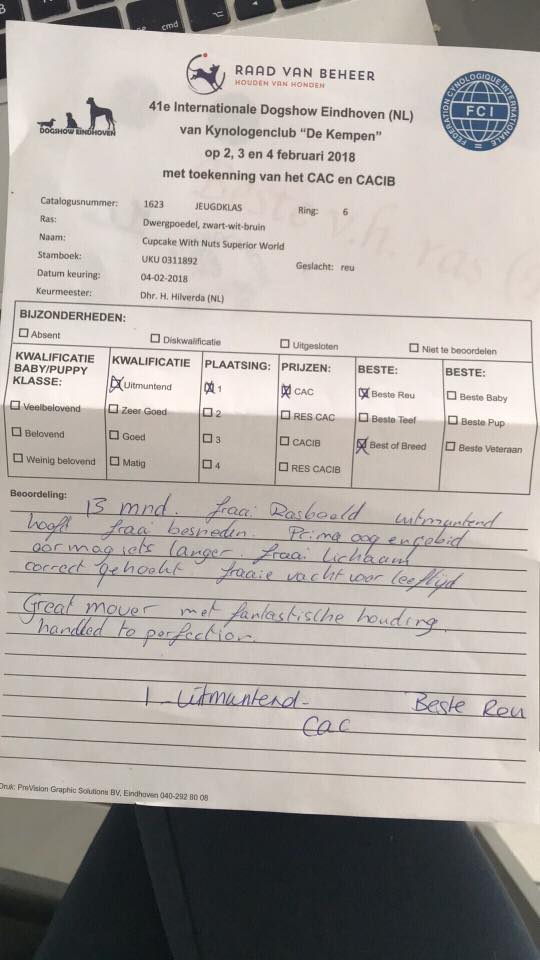 cmd
RAAD VAN BEHEER
HOUDEN VAN HONDEN
DOGSHOW EINDHOVEN
FEDERATION CYNOLOGIQUE INTERNATIONALE
FCI
41e Internationale Dogshow Eindhoven (NL)
van Kynologenclub "De Kempen"
op 2, 3 en 4 februari 2018
met toekenning van het CAC en CACIB
Catalogusnummer: 1623 JEUGDKLAS Ring: 6
Ras: Dwergpoedel, zwart-wit-bruin
Naam: Cupcake With Nuts Superior World
Stamboek: UKU 0311892 Geslacht: reu
Datum keuring: 04-02-2018
Keurmeester: Dhr. H. Hilverda (NL)
BIJZONDERHEDEN:
Absent Diskwalificatie Uitgesloten Niet te beoordelen
KWALIFICATIE BABY/PUPPY KLASSE:
Veelbelovend
Belovend
Weinig belovend
KWALIFICATIE
Uitmuntend
Zeer Goed
Goed
Matig
PLAATSING:
1
2
3
4
PRIJZEN:
CAC
RES CAC
CACIB
RES CACIB
BESTE:
Beste Reu
Beste Teef
Best of Breed
BESTE:
Beste Baby
Beste Pup
Beste Veteraan
Beoordeling:
13 mnd. fraai Rasbeeld uitmuntend
hooft fraai besneden. Prima oog en gebid
oor mag iets langer. fraai lichaam
correct gehoekt fraaie vacht voor leeftijd
Great mover met fantastische houding.
handled to perfection.
1 Uitmuntend - Beste Reu
Cac
Druk: PreVision Graphic Solutions BV, Eindhoven 040-292 80 08